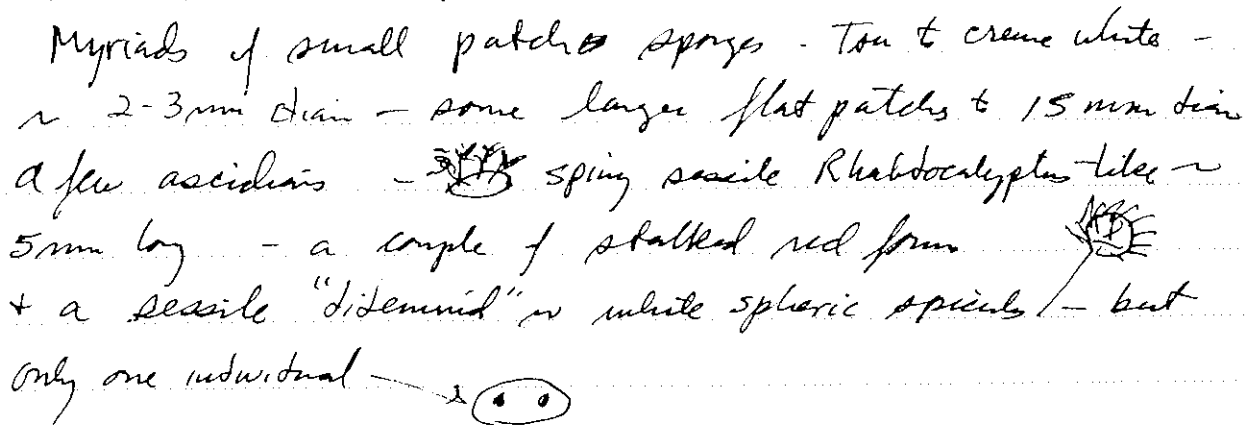 Myriads of small patch sponges - Tan to creme white -
~ 2-3mm diam - some larger flat patches to 15 mm diam
a few ascidians - spiny sessile Rhabdocalyptus-like ~
5mm long - a couple of stalked red form
+ a sessile "didemnid" w white spheric spicules - but
only one individual -